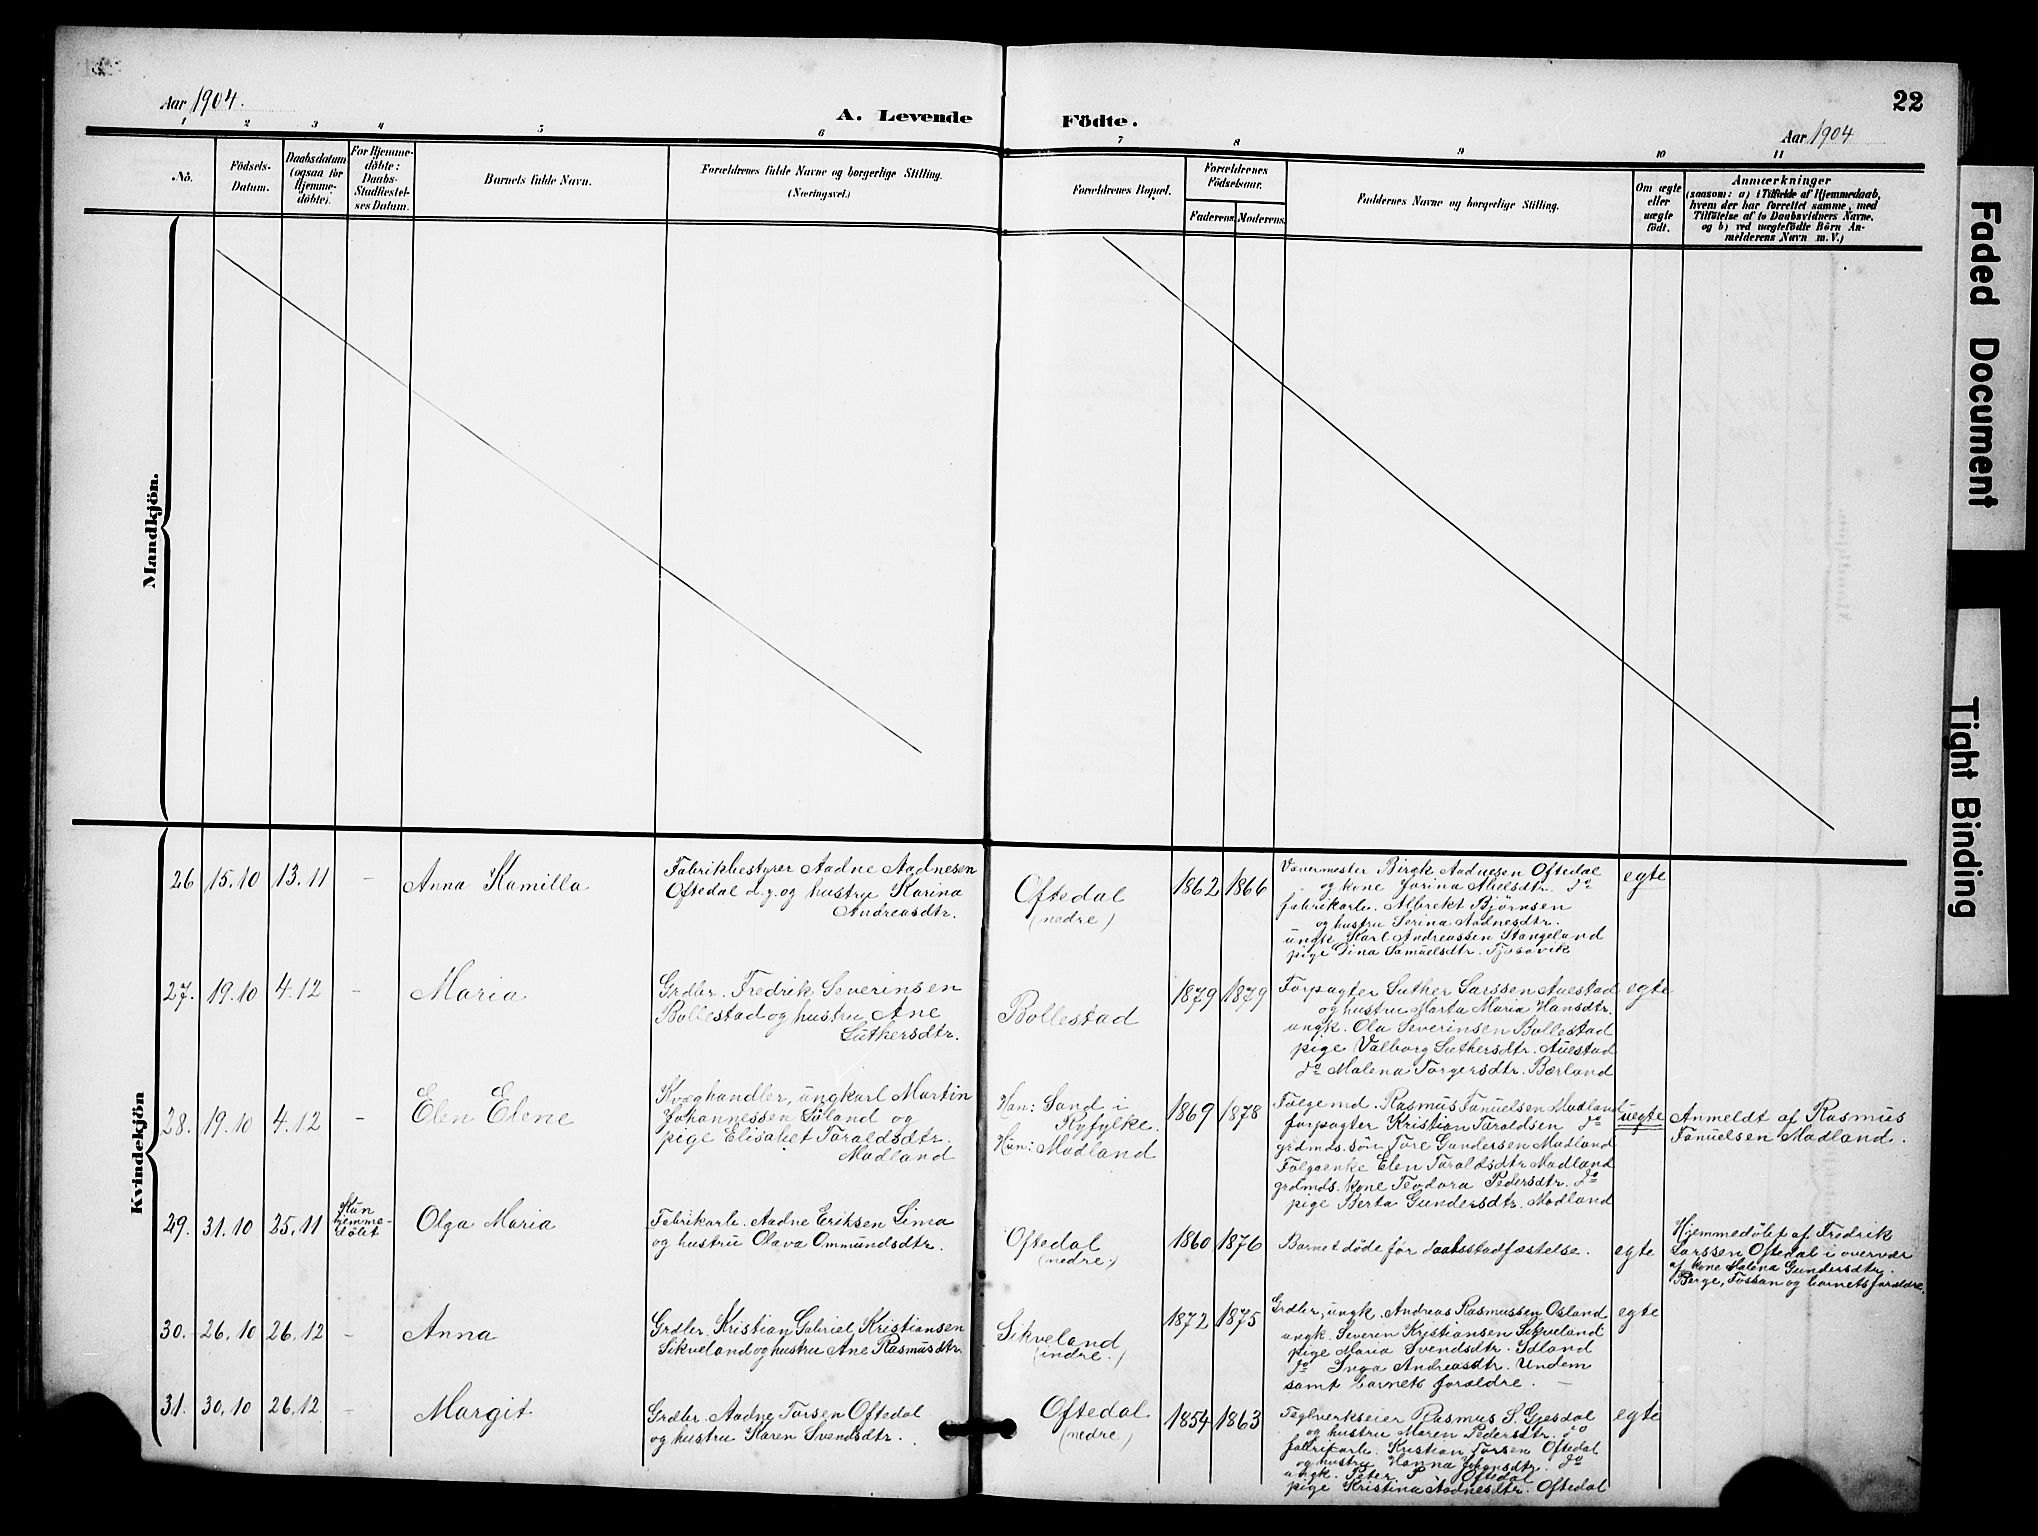 22
Aar 1904.
A. Levende Födte.
Aar 1904
1 2 3 4 5 6 7 8 9 10 11
No.
Födsels-
Datum.
Daabsdatum
(ogsaa for
Hjemme-
döbte).
For Hjemme-
döbte:
Daabs-
Stadfæstel-
ses Datum.
Barnets fulde Navn.
Forældrenes fulde Navne og borgerlige Stilling.
(Næringsvei.)
Forældrenes Bopæl.
Forældrenes
Födselsaar.
Faderens. Moderens.
Faddernes Navne og borgerlige Stilling.
Om ægte
eller
uægte
födt.
Anmærkninger
(saasom: a) i Tilfælde af Hjemmedaab,
hvem der har forrettet samme, med
Tilföielse af to Daabsvidners Navne.
og b) ved uægtefödte Börn An-
melderens Navn m. V.)
Mandkjön.
Kvindekjön
26 15.10 13.11 - Anna Kamilla
Fabrikbestyrer Aadne Aadnesen
Oftedal d.y. og hustru Karina
Andreasdtr.
Oftedal
(nedre)
1862 1866
Vævermester Birgk Aadnesen Oftedal
og kone Jorina Abelsdtr. do
fabrikarb. Albrekt Bjørnsen
og hustru Serina Aadnesdtr.
ungk. Karl Andreassen Stangeland
pige Dina Samuelsdtr. Tjøsavik
egte
27. 19.10 4.12 - Maria
Grdbr. Fredrik Severinsen
Bollestad og hustru Ane
Luthersdtr.
Bollestad
1879 1879
Forpagter Luther Larssen Auestad
og hustru Marta Maria Hansdtr.
ungk. Ola Severinsen Bollestad
pige Valborg Luthersdtr. Auestad
do Malena Torgersdtr. Bærland
egte
28. 19.10 4.12 - Elen Elene
Kvæghandler, ungkarl Martin
Johannessen Løland og
pige Elisabet Taraldsdtr.
Madland
Han: Sand i
Ryfylke.
Hun: Madland
1869 1878
Følgemd. Rasmus Tanuelsen Madland
forpagter Kristian Taraldsen do
grdmds. søn Tore Gundersen Madland
Følgeenke Elen Taraldsdtr. Madland
grdmds. kone Teodora Pedersdtr. do
pige Berta Gundersdtr. Madland
uegte
Anmeldt af Rasmus
Tanuelsen Madland.
29. 31.10 25.11
Kun
hjemme-
døbt
Olga Maria
Fabrikarb. Aadne Eriksen Lima
og hustru Olava Ommundsdtr.
Oftedal
(nedre)
1860 1876
Barnet døde før daabsstadfæstelse.
egte
Hjemmedøbt af Fredrik
Larssen Oftedal i overvær
af kone Malena Gundersdtr.
Berge, Fossan og barnets forældre.
30. 26.10 26.12 - Anna
Grdbr. Kristian Gabriel Kristiansen
Sikveland og hustru Ane Rasmusdtr.
Sikveland
(indre.)
1872 1875
Grdbr., ungk. Andreas Rasmussen Osland
ungk. Severin Kristiansen Sikveland
pige Maria Svendsdtr. Idland
do Inga Andreasdtr. Undem
samt barnets forældre.
egte
31. 30.10 26.12 - Margit
Grdbr. Aadne Torsen Oftedal
og hustru Karen Svendsdtr.
Oftedal
(nedre)
1854 1863
Teglverkseier Rasmus S. Gjesdal
og hustru Maren Pedersdtr. do
fabrikarb. Kristian Torsen Oftedal
og hustru Hanna Johansdtr. do
ungk. Peter P Oftedal
pige Kristina Aadnesdtr. Oftedal
egte
Faded Document
Tight Binding